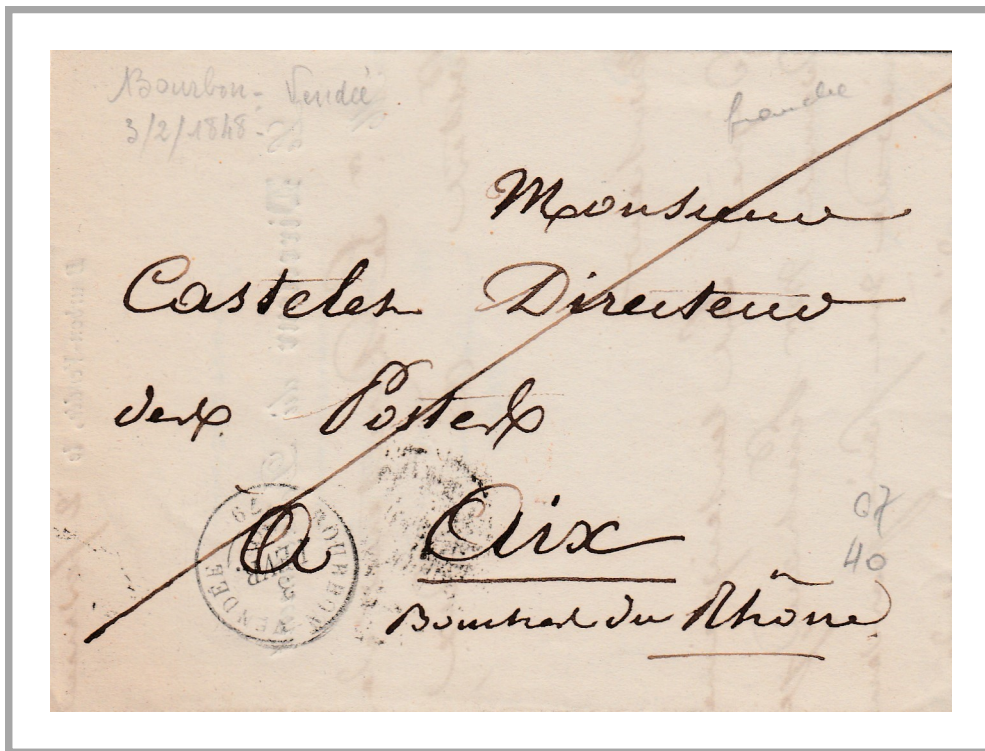 Bourbon - Vendée
3/2/1848 -
franche
Monsieur
Casteler Directeur
des Postes
A Aix
Bouches du Rhône
07
40
BOURBON-VENDÉE
3
FEVR.
79